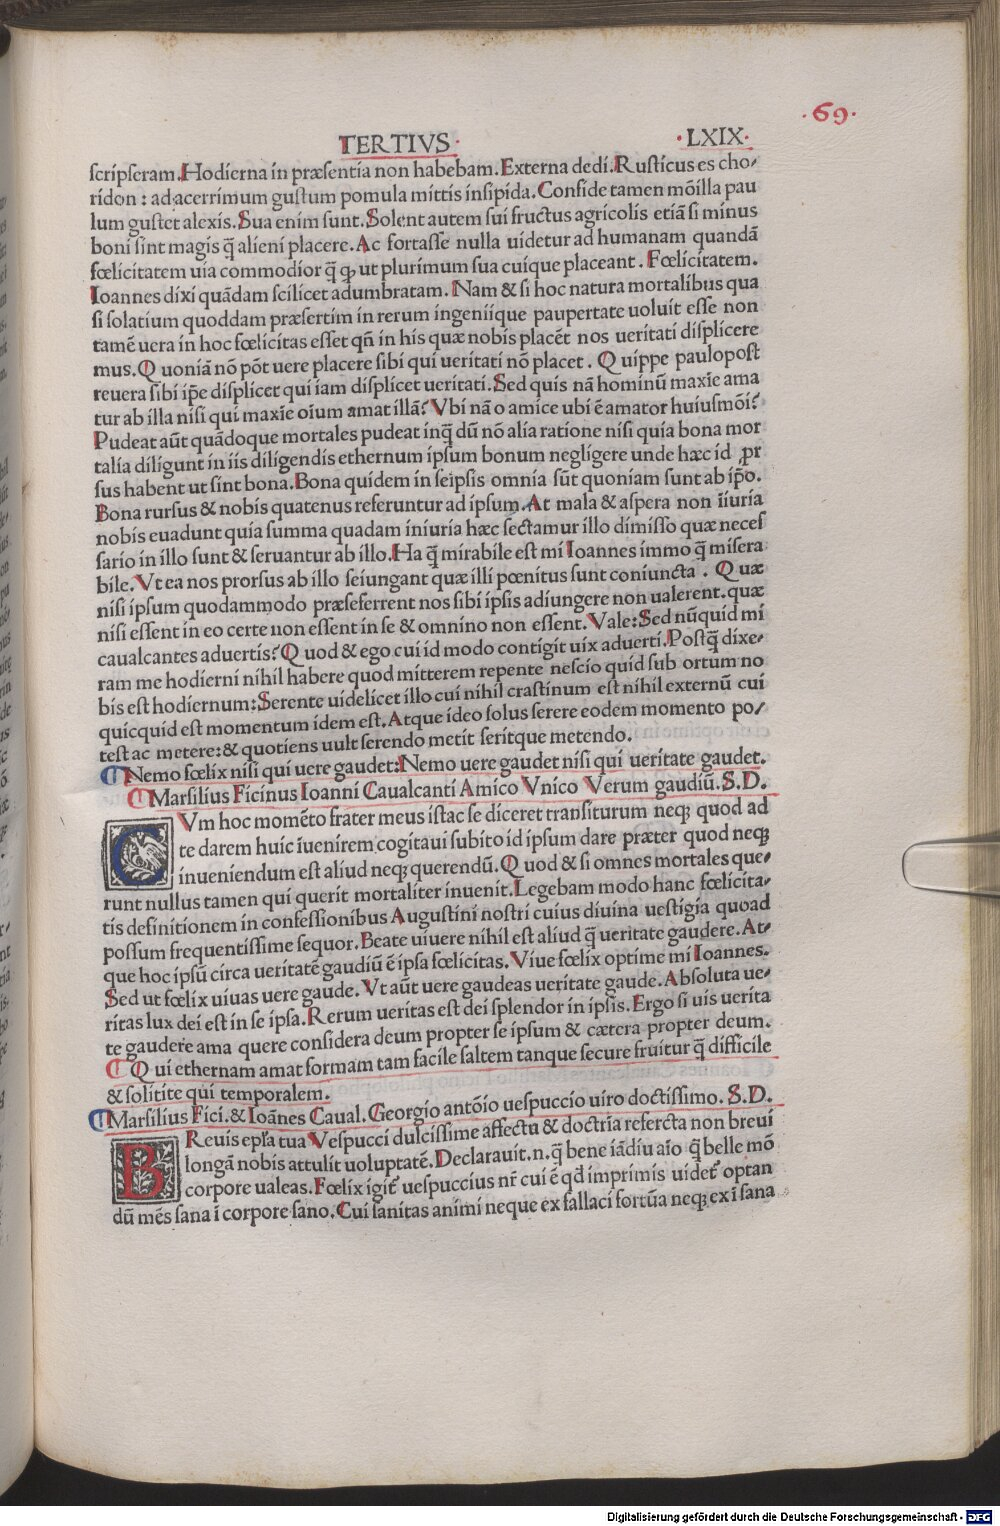 ·69·
TERTIVS· ·LXIX·
scripseram.Hodierna in præsentia non habebam.Externa dedi.Rusticus es cho/
ridon : ad acerrimum gustum pomula mittis insipida.Confide tamen mõ illa pau
lum gustet alexis.Sua enim sunt.Solent autem sui fructus agricolis etiã si minus
boni sint magis q̃ alieni placere.Ac fortasse nulla uidetur ad humanam quandã
fœlicitatem uia commodior q̃ ꝙ ut plurimum sua cuique placeant . Fœlicitatem.
Ioannes dixi quãdam scilicet adumbratam.Nam & si hoc natura mortalibus qua
si solatium quoddam præsertim in rerum ingeniique paupertate uoluit esse non
tamẽ uera in hoc fœlicitas esset qñ in his quæ nobis placẽt nos ueritati displicere
mus.Quoniã nõ põt uere placere sibi qui ueritati nõ placet . Quippe paulopost
reuera sibi ip̃e displicet qui iam displicet ueritati.Sed quis nã hominũ maxĩe ama
tur ab illa nisi qui maxĩe oĩum amat illã?Vbi nã o amice ubi ẽ amator huiusmõi?
Pudeat aũt quãdoque mortales pudeat inq̃ dũ nõ alia ratione nisi quia bona mor
talia diligunt in iis diligendis ethernum ipsum bonum negligere unde hæc id ꝓr
sus habent ut sint bona.Bona quidem in seipsis omnia sũt quoniam sunt ab ip̃o.
Bona rursus & nobis quatenus referuntur ad ipsum.At mala & aspera non ĩiuria
nobis euadunt quia summa quadam iniuria hæc sectamur illo dimisso quæ neces
sario in illo sunt & seruantur ab illo.Ha q̃ mirabile est mi Ioannes immo q̃ misera
bile.Vt ea nos prorsus ab illo seiungant quæ illi pœnitus sunt coniuncta . Quæ
nisi ipsum quodammodo præseferrent nos sibi ipsis adiungere non ualerent.quæ
nisi essent in eo certe non essent in se & omnino non essent.Vale:Sed nũquid mi
caualcantes aduertis?Quod & ego cui id modo contigit uix aduerti.Postq̃ dixe/
ram me hodierni nihil habere quod mitterem repente nescio quid sub ortum no
bis est hodiernum:Serente uidelicet illo cui nihil crastinum est nihil externũ cui
quicquid est momentum idem est.Atque ideo solus serere eodem momento po/
test ac metere:& quotiens uult serendo metit seritque metendo.
¶Nemo fœlix nisi qui uere gaudet:Nemo uere gaudet nisi qui ueritate gaudet.
¶Marsilius Ficinus Ioanni Caualcanti Amico Vnico Verum gaudiũ.S.D.
CVm hoc momẽto frater meus istac se diceret transiturum neqꝫ quod ad
te darem huic iuenirem cogitaui subito id ipsum dare præter quod neqꝫ
inueniendum est aliud neqꝫ querendũ.Quod & si omnes mortales que/
runt nullus tamen qui querit mortaliter inuenit.Legebam modo hanc fœlicita/
tis definitionem in confessionibus Augustini nostri cuius diuina uestigia quoad
possum frequentissime sequor.Beate uiuere nihil est aliud q̃ ueritate gaudere.At/
que hoc ipsũ circa ueritatẽ gaudiũ ẽ ipsa fœlicitas.Viue fœlix optime mi Ioannes.
Sed ut fœlix uiuas uere gaude.Vt aũt uere gaudeas ueritate gaude.Absoluta ue/
ritas lux dei est in se ipsa.Rerum ueritas est dei splendor in ipsis.Ergo si uis uerita
te gaudere ama quere considera deum propter se ipsum & cætera propter deum.
¶Qui ethernam amat formam tam facile saltem tanque secure fruitur q̃ difficile
& solitite qui temporalem.
¶Marsilius Fici.& Ioãnes Caual.Georgio antõio uespuccio uiro doctissimo. S.D.
BReuis epĺa tua Vespucci dulcissime affectu & doctrĩa refercta non breui
longã nobis attulit uoluptatẽ.Declarauit.n.q̃ bene iãdiu aĩo q̃ belle mõ
corpore ualeas.Fœlix igit̃ uespuccius nr̃ cui ẽ qd̃ imprimis uidet̃ optan
dũ mẽs sana ĩ corpore sano.Cui sanitas animi neque ex fallaci fortũa neqꝫ ex ĩ sana
Digitalisierung gefördert durch die Deutsche Forschungsgemeinschaft - DFG